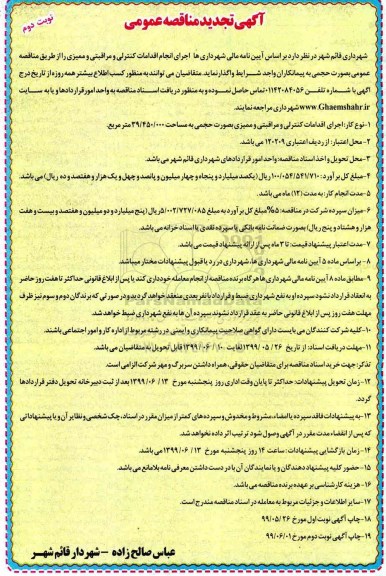 آگهی تجدید مناقصه عمومی
نوبت دوم
شهرداری قائم شهر در نظر دارد بر اساس آیین نامه مالی شهرداری ها اجرای انجام اقدامات کنترلی و مراقبتی و ممیزی را از طریق مناقصه
عمومی بصورت حجمی به پیمانکاران واجد شرایط واگذار نماید. متقاضیان می توانند به منظور کسب اطلاع بیشتر همه روزه از تاریخ درج
آگهی با شماره تلفن ۰۱۱۴۲۰۸۴۰۵۶ تماس حاصل نموده و به منظور دریافت اسناد مناقصه به واحد امور قراردادها و یا به سایت
www.Ghaemshahr.ir شهرداری مراجعه نمایند.
۱-نوع کار: اجرای اقدامات کنترلی و مراقبتی و ممیزی بصورت حجمی به مساحت ۳۹/۴۵۰/۰۰۰ متر مربع.
۲- محل اعتبار: از ردیف اعتباری ۱۲۰۲۰۹ می باشد.
۳- محل تحویل و اخذ اسناد مناقصه: واحد امور قراردادهای شهرداری قائم شهر می باشد.
۴-مبلغ کل برآورد: ۱۰۰/۰۵۴/۵۴۱/۷۱۰ ریال (یکصد میلیارد و پنجاه و چهار میلیون و پانصد و چهل و یک هزار و هفتصد و ده ریال) می باشد.
۵-مدت انجام کار: به مدت (۱۲) ماه می باشد.
۶-میزان سپرده شرکت در مناقصه: ۵% مبلغ کل برآورد به مبلغ ۵/۰۰۲/۷۲۷/۰۸۵ ریال (پنج میلیارد و دو میلیون و هفتصد و بیست و هفت
هزار و هشتاد و پنج ریال) بصورت ضمانت نامه بانکی یا سپرده نقدی یا اسناد خزانه می باشد.
۷-مدت اعتبار پیشنهاد قیمت: تا ۳ ماه پس از ارائه پیشنهاد قیمت می باشد.
۸- بر اساس ماده ۵ آیین نامه مالی شهرداری ها، شهرداری در رد یا قبول پیشنهادات مختار میباشد.
۹-مطابق ماده ۸ آیین نامه مالی شهرداری ها هر گاه برنده مناقصه از انجام معامله خودداری کند یا پس از ابلاغ قانونی حداکثر تا هفت روز حاضر
به انعقاد قرارداد نشود سپرده او به نفع شهرداری ضبط و قرارداد با نفر بعدی منعقد خواهد گردید و در صورتی که برندگان دوم و سوم نیز ظرف
مهلت هفت روز پس از ابلاغ قانونی حاضر به عقد قرارداد نشوند سپرده آن ها به نفع شهرداری ضبط خواهد شد.
۱۰-کلیه شرکت کنندگان می بایست دارای گواهی صلاحیت پیمانکاری و ایمنی در رشته مربوط از اداره کار و امور اجتماعی باشند.
۱۱-مهلت دریافت اسناد: از تاریخ ۲۶ /۰۵ /۱۳۹۹ لغایت ۱۰ /۰۶ /۱۳۹۹ قابل تحویل به متقاضیان می باشد.
تذکر: جهت خرید اسناد مناقصه برای متقاضیان حقوقی، همراه داشتن سربرگ و مهر شرکت الزامی است.
۱۲- زمان تحویل پیشنهادات: حداکثر تا پایان وقت اداری روز پنجشنبه مورخ ۱۳ /۰۶ /۱۳۹۹ بعد از ثبت دبیرخانه تحویل دفتر قراردادها
گردد.
۱۳-به پیشنهادات فاقد سپرده یا امضاء، مشروط و مخدوش و سپرده های کمتر از میزان مقرر در اسناد، چک شخصی و نظایر آن و یا پیشنهاداتی
که پس از انقضاء مدت مقرر در آگهی وصول شود ترتیب اثر داده نخواهد شد.
۱۴-زمان بازگشایی پیشنهادات: ساعت ۱۴ روز پنجشنبه مورخ ۱۳ /۰۶ /۱۳۹۹ می باشد.
۱۵-حضور کلیه پیشنهاد دهندگان و یا نمایندگان آن با در دست داشتن معرفی نامه بلامانع می باشد.
۱۶-هزینه کارشناسی بر عهده برنده مناقصه می باشد.
۱۷-سایر اطلاعات و جزئیات مربوط به معامله در اسناد مناقصه مندرج است.
۱۸-چاپ آگهی نوبت اول مورخ ۲۶ /۰۵ /۹۹
۱۹-چاپ آگهی نوبت دوم مورخ ۹۹/۰۶/۰۱
عباس صالح زاده - شهردار قائم شهر